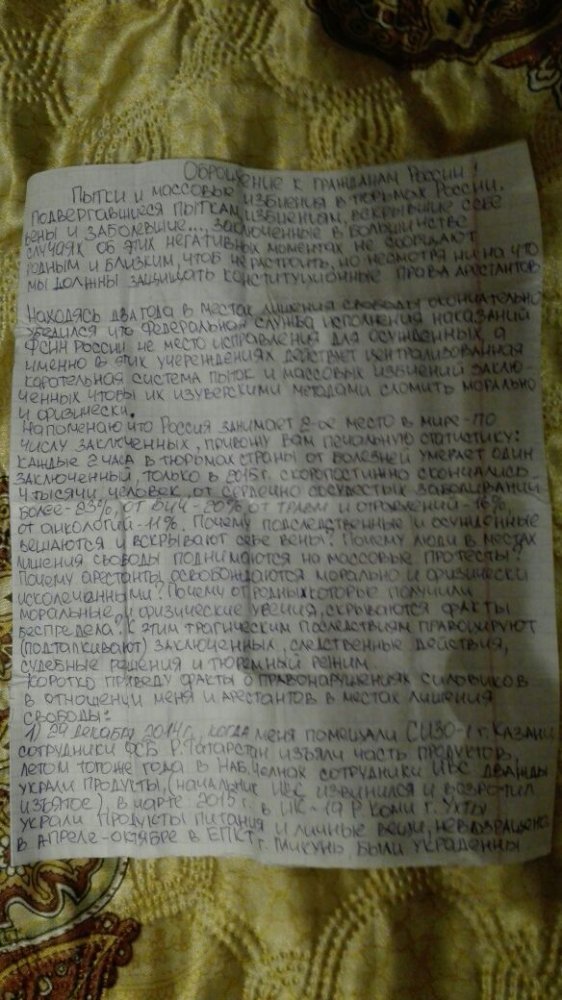 Обращение к гражданам России!
Пытки и массовые избиения в тюрьмах России.
Подвергавшиеся пыткам, избиениям, вскрывшие себе
вены и заболевшие..., заключенные в большинстве
случаях об этих негативных моментах не сообщают
родным и близким, чтоб не растроить, но несмотря ни на что
мы должны защищать конституционные права арестантов.
Находясь два года в местах лишения свободы окончательно
убедился что Федеральная служба исполнения наказаний
ФСИН России не место исправления для осужденных а
именно в этих учереждениях действует централизованная
карательная система пыток и массовых избиений заклю-
ченных чтобы их изуверскими методами сломить морально
и физически.
Напоменаю что Россия занимает 2-ое место в мире по
числу заключенных, привожу вам печальную статистику:
каждые 2 часа в тюрьмах страны от болезней умерает один
заключенный, только в 2015г. скоропостижно скончались
4 тысячи человек, от сердечно сосудистых заболиваний
более-23%, от ВИЧ-20% от травм и отравлений-16%
от онкологий-11%. Почему подследственные и осужденные
вешаются и вскрывают себе вены? Почему люди в местах
лишения свободы поднимаются на массовые протесты?
Почему арестанты освобождаются морально и физически
исколеченными? Почему от родных которые получили
моральные и физические увечия, скрываются факты
беспредела? К этим трагическим последствиям правоцируют
(подталкивают) заключенных, следственные действия,
судебные решения и тюремный режим.
Коротко приведу факты о правонарушениях силовиков
в отношении меня и арестантов в местах лишения
свободы:
1) 29 декабря 2014г., когда меня помещали СИЗО-1 г. Казани
сотрудники ФСБ Р.Татарстан изъяли часть продуктов,
летом того же года в Наб.Челнах сотрудники ИВС дважды
украли продукты, (начальник ИВС извинился и возвротил
изъятое), в марте 2015г. в ИК-19 Р Коми г. Ухты
украли продукты питания и личные вещи, невозвращено
в апреле-октябре в ЕПКТ г. Микунь были украденны